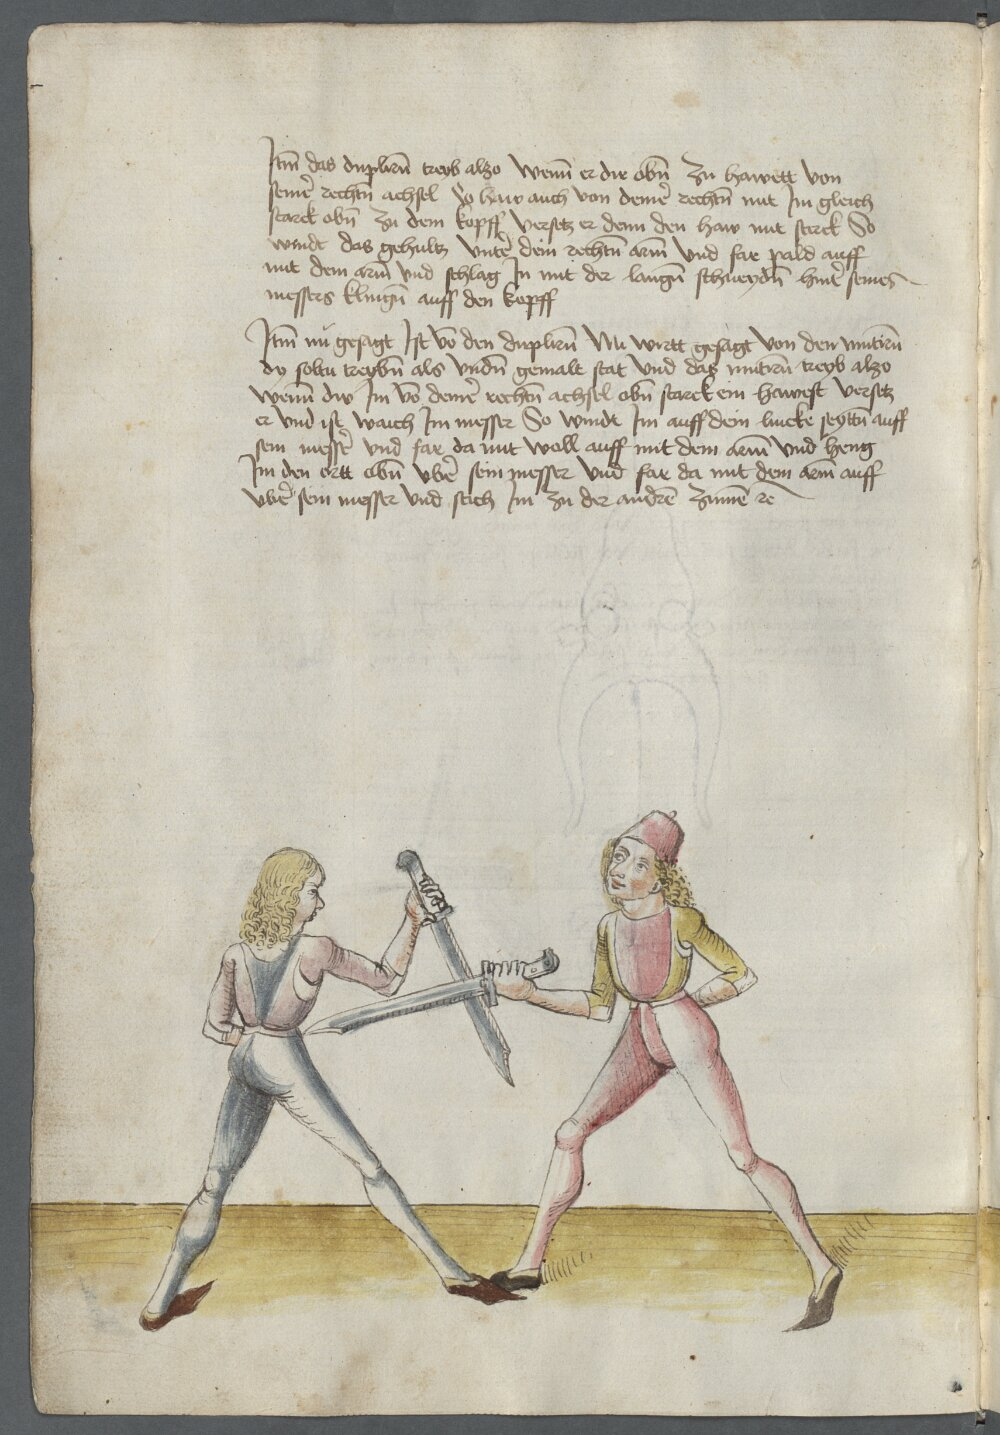 Itm̄ das duplirn̄ treyb also Wenn̄ er dir obn̄ zu hawett von
seinē rechtn̄ achsel So haw auch von deinē rechtn̄ mit Im gleich
starck obn̄ zu dem kopff versetz er denn den haw mit sterck So
windt das gehultz Untē dein rechtn̄ arm̄ Und far pald auff
mit dem arm̄ Und schlag In mit der langn̄ schneydn̄ hintē seines
messers klingn̄ auff den kopff
Itm̄ nū gesagt Ist vō den duplirn̄ Nu wirtt gesagt von den mutirn̄
dy soltu treybn̄ als Undn̄ gemalt stat Und das mutirn̄ treyb also
wenn̄ dw Im vō deinē rechtn̄ achsel obn̄ starck ein hawest versetz
er Und ist waich Im messer So windt Im auff dein lincke seyttn̄ auff
sein messē Und far da mit woll auff mit dem arm̄ Und heng
Im den ortt obn̄ vbē sein messer Und far da mit dem arm̄ auff
vbē sein messer Und stich Im zu der andrē zinnē rc